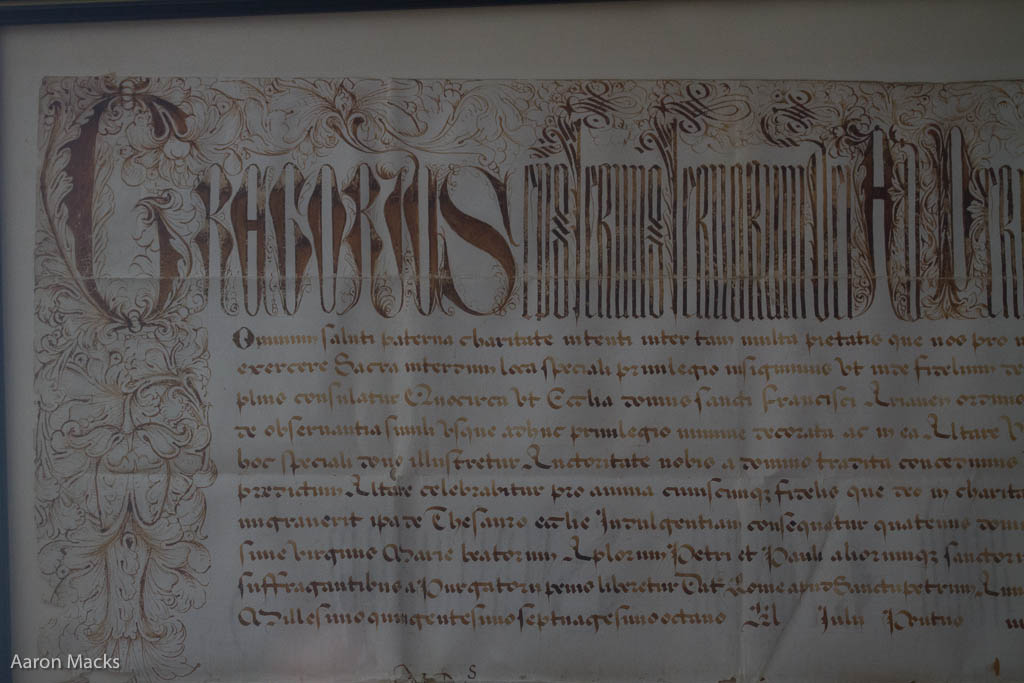 GREGORIUS episcopus servus servorum dei AD
Omnium saluti paterna charitate intenti interdum multa pietatis que nos pro
exercere Sacra interdum loca speciali privilegio insignimus Ut inde fidelium
plius consulatur Quocirca Ut Ecclia domus sancti francisci
de observantia simili Usque adhuc privilegio minime decorata ac in ea Altare
hoc speciali dono illustretur Auctoritate nobis a domino tradita concedimus
prædictum Altare celebrabitur pro anima cuiuscumqz fidelis que deo in charita
migraverit ipa de Thesauro ecclie Indulgentiam consequatur quatenus
sime Virginis Marie beatorum Aplorum Petri et Pauli aliorumqz sanctor
suffragantibus a Purgatorii penis liberetur Dat Rome apud Sanctu petrum
Millesimo quingentesimo septuagesimo octavo Kl Julii Pontus
Aaron Macks